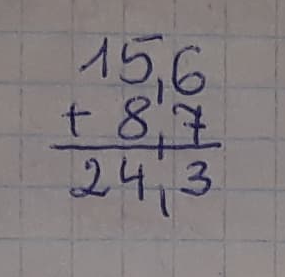 15,6
+ 8,7
24,3